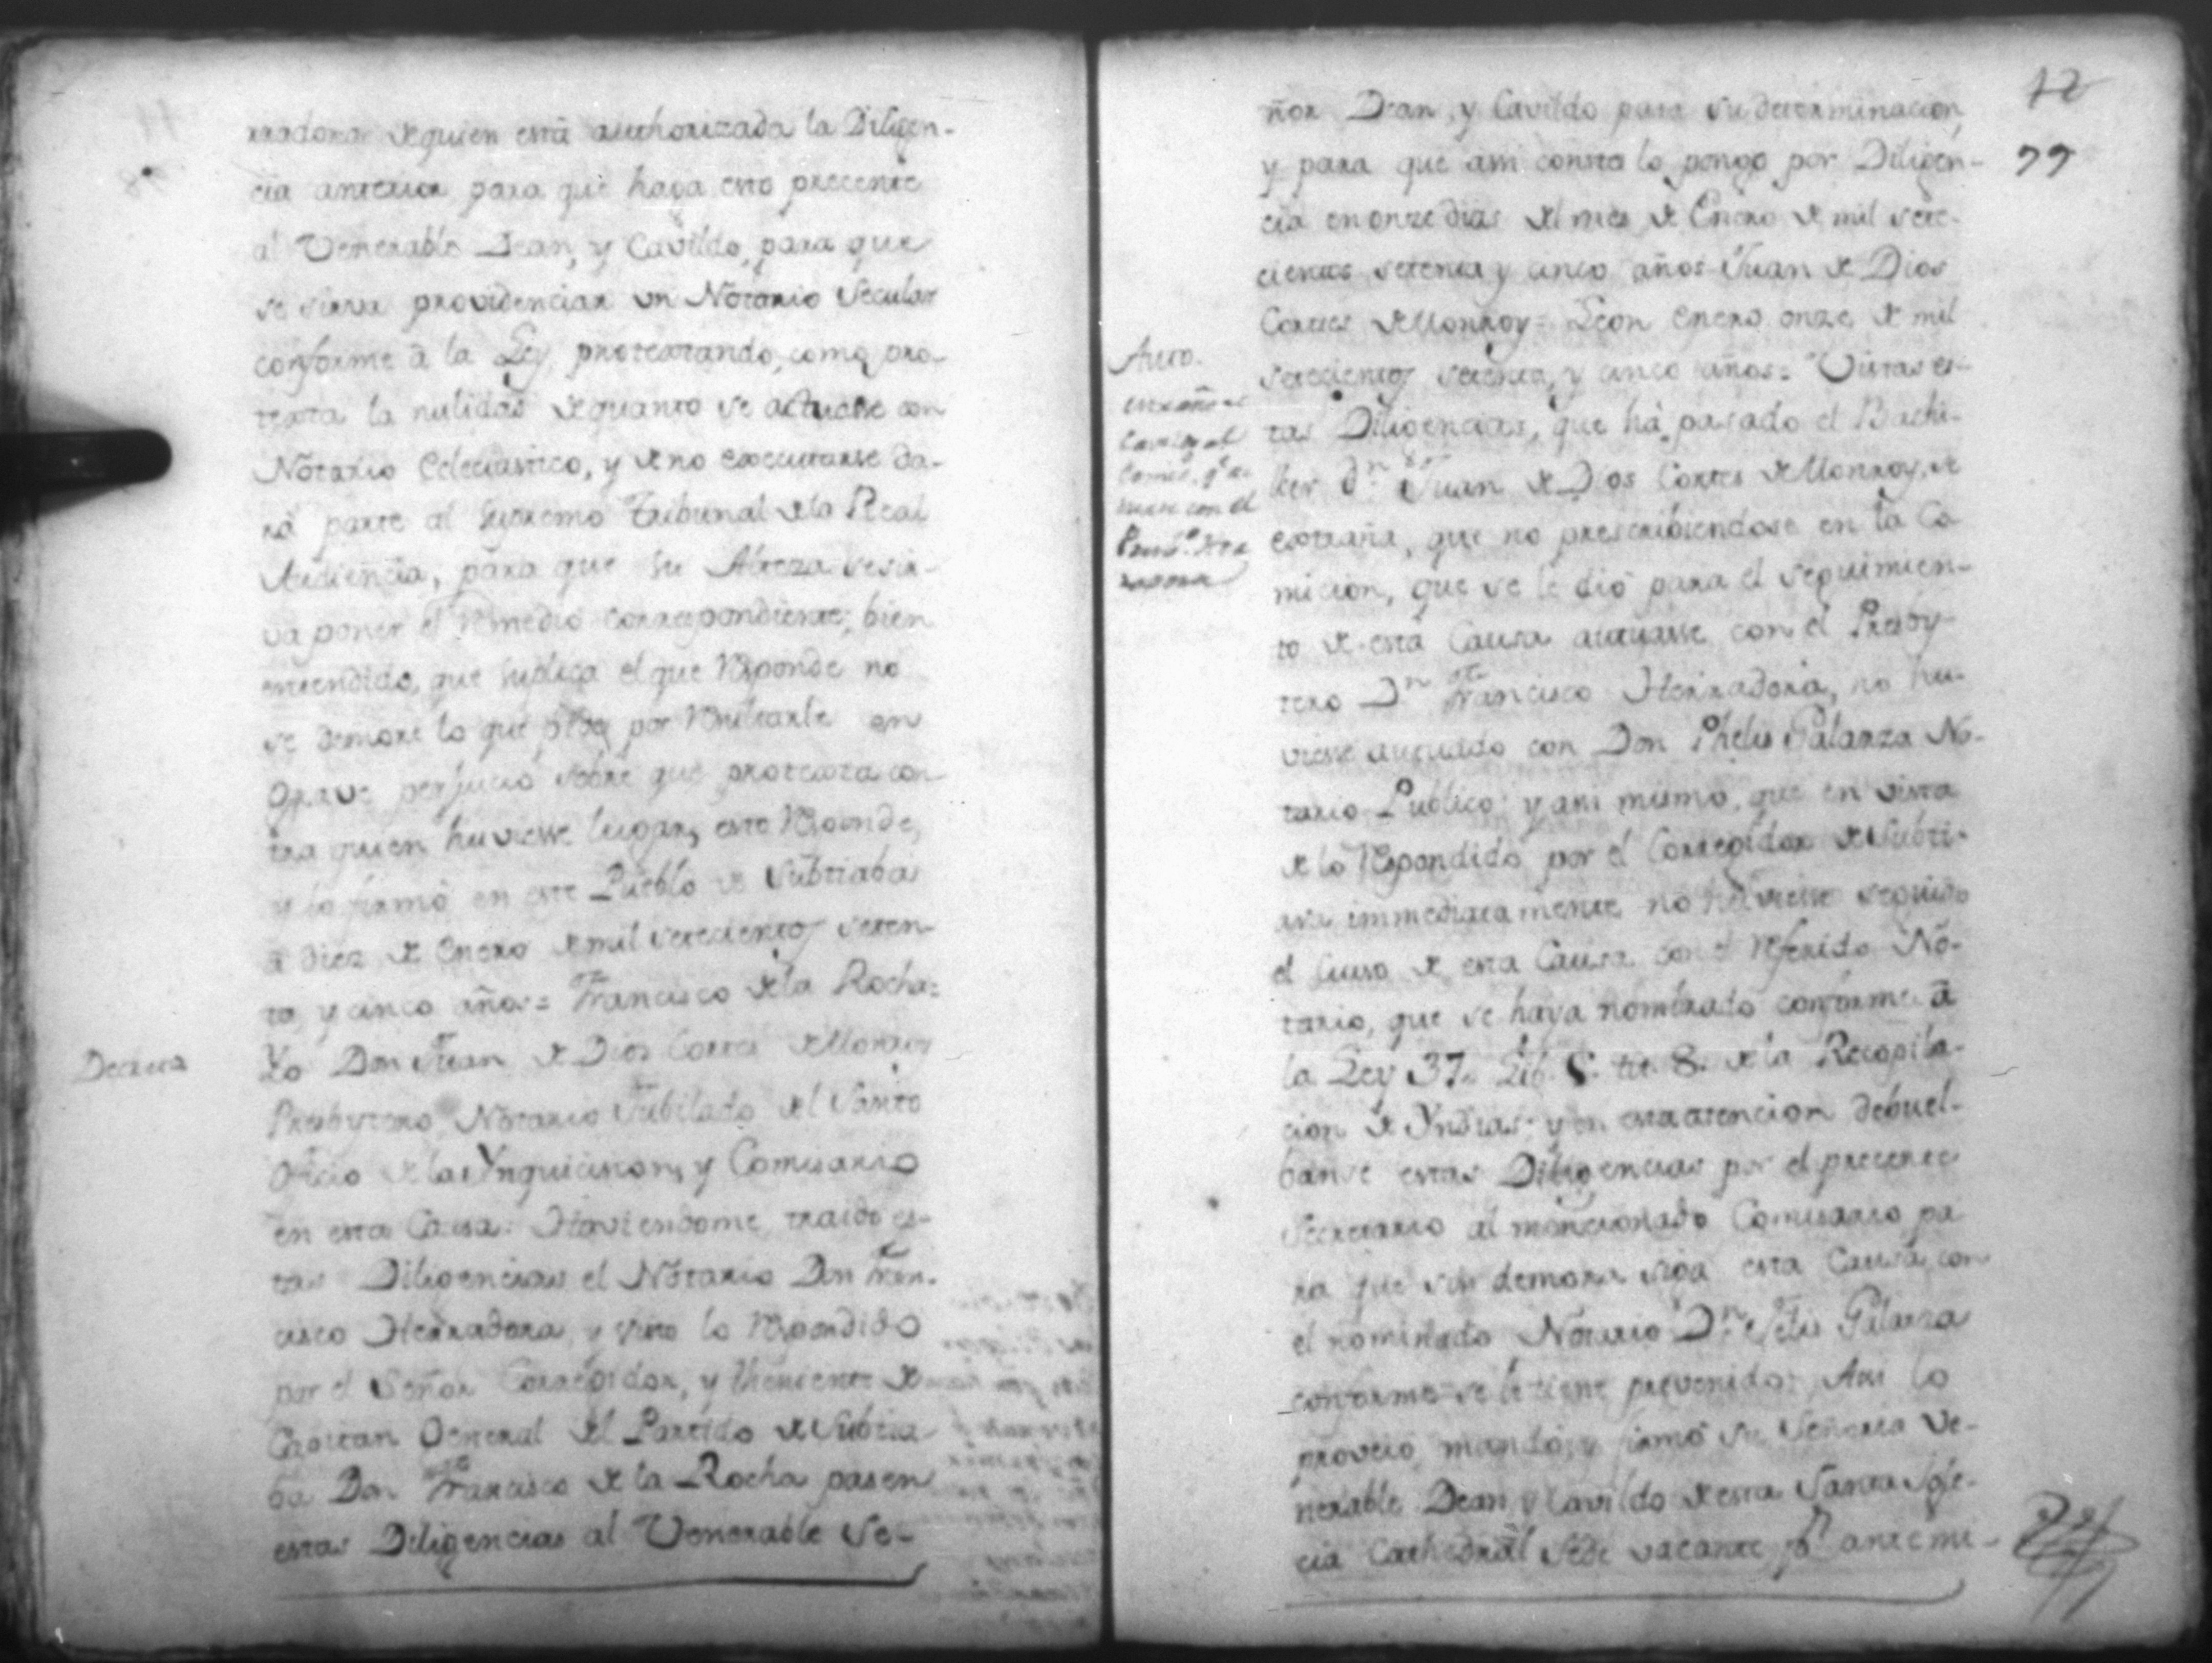 rradora de quien está authorizada la Diligen-
cia anterior para que haga esto precente
al Venerable Dean, y Cavildo, para que
se sirva providenciar un Notario Secular
conforme â la Ley, protextando, como pro-
texta la nulidad de quanto se actuasse con
Notario Eclesiastico, y de no executarse da-
rá parte al Supremo Tribunal de la Real
Audiencia, para que su Alteza se sir-
va poner el Remedio correspondiente; bien
entendido, que suplica el que Responde no
se demore lo que pide por Resultarle en
grave perjuicio sobre que protexta con-
tra quien huviesse lugar, esto Responde,
y lo firmó en este Pueblo de Subtiaba
â diez de Enero de mil setecientos seten-
ta, y cinco años = Francisco de la Rocha =
Yo Don Juan de Dios Cortes de Monroy
Presbytero, Notario Jubilado del Santo
Oficio de la Ynquicision, y Comisario
en esta Causa: Haviendome traido es-
tas Diligencias el Notario Don Fran-
cisco Herradora, y visto lo Respondido
por el Señor Corregidor, y Theniente de
Capitan General del Partido de Subtia-
ba Don Francisco de la Rocha pasen
estas Diligencias al Venerable Se-
12
77
ñor Dean, y Cavildo para su determinacion,
y para que assi conste lo pongo por Diligen-
cia en onze dias del mes de Enero de mil sete-
cientos setenta y cinco años Juan de Dios
Cortes de Monroy = Leon Enero onze de mil
setecientos setenta, y cinco años = Vistas es-
tas Diligencias, que há pasado el Bachi-
ller Dn. Juan de Dios Cortes de Monroy, se
extraña, que no prescribiendose en la Co-
micion, que se le dió para el seguimien-
to de esta Causa actuasse con el Presby-
tero Dn Francisco Herradora, no hu-
viesse actuado con Don Phelis Galarza No-
tario Publico; y assi mismo, que en vista
de lo Respondido por el Corregidor de Subti-
ava immediatamente no huviesse seguido
el Curso de esta Causa con el Referido No-
tario, que se haya nombrado conforme â
la Ley 37. Lib. tit. 8. de la Recopila-
cion de Yndias; y en esta atencion debuel-
banse estas Diligencias por el precente
Secretario al mencionado Comisario pa-
ra que sin demora siga esta Causa con
el nominado Notario Dn. Felis Galarza
conforme se le tiene prevenido: Assi lo
proveió, mandó, y firmó Su Señoria Ve-
nerable Dean, y Cavildo de esta Santa Ygle-
cia Cathedral Sede vacante pr. ante mi-
Auto.